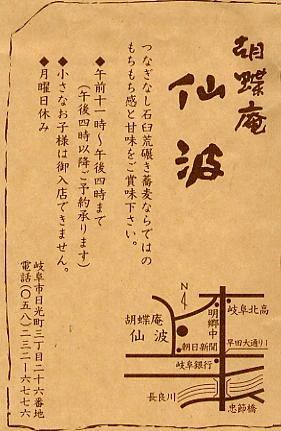 胡蝶庵
仙波
つなぎなし石臼荒碾き蕎麦ならではの
もちもち感と甘味をご賞味下さい。
◆午前十一時〜午後四時まで
(午後四時以降ご予約承ります)
◆小さなお子様は御入店できません。
◆月曜日休み
岐阜市日光町三丁目二十六番地
電話(〇五八)二三二ー六七七六
N
明郷中
岐阜北高
胡蝶庵
仙波
朝日新聞
早田大通り1
岐阜銀行
長良川
忠節橋